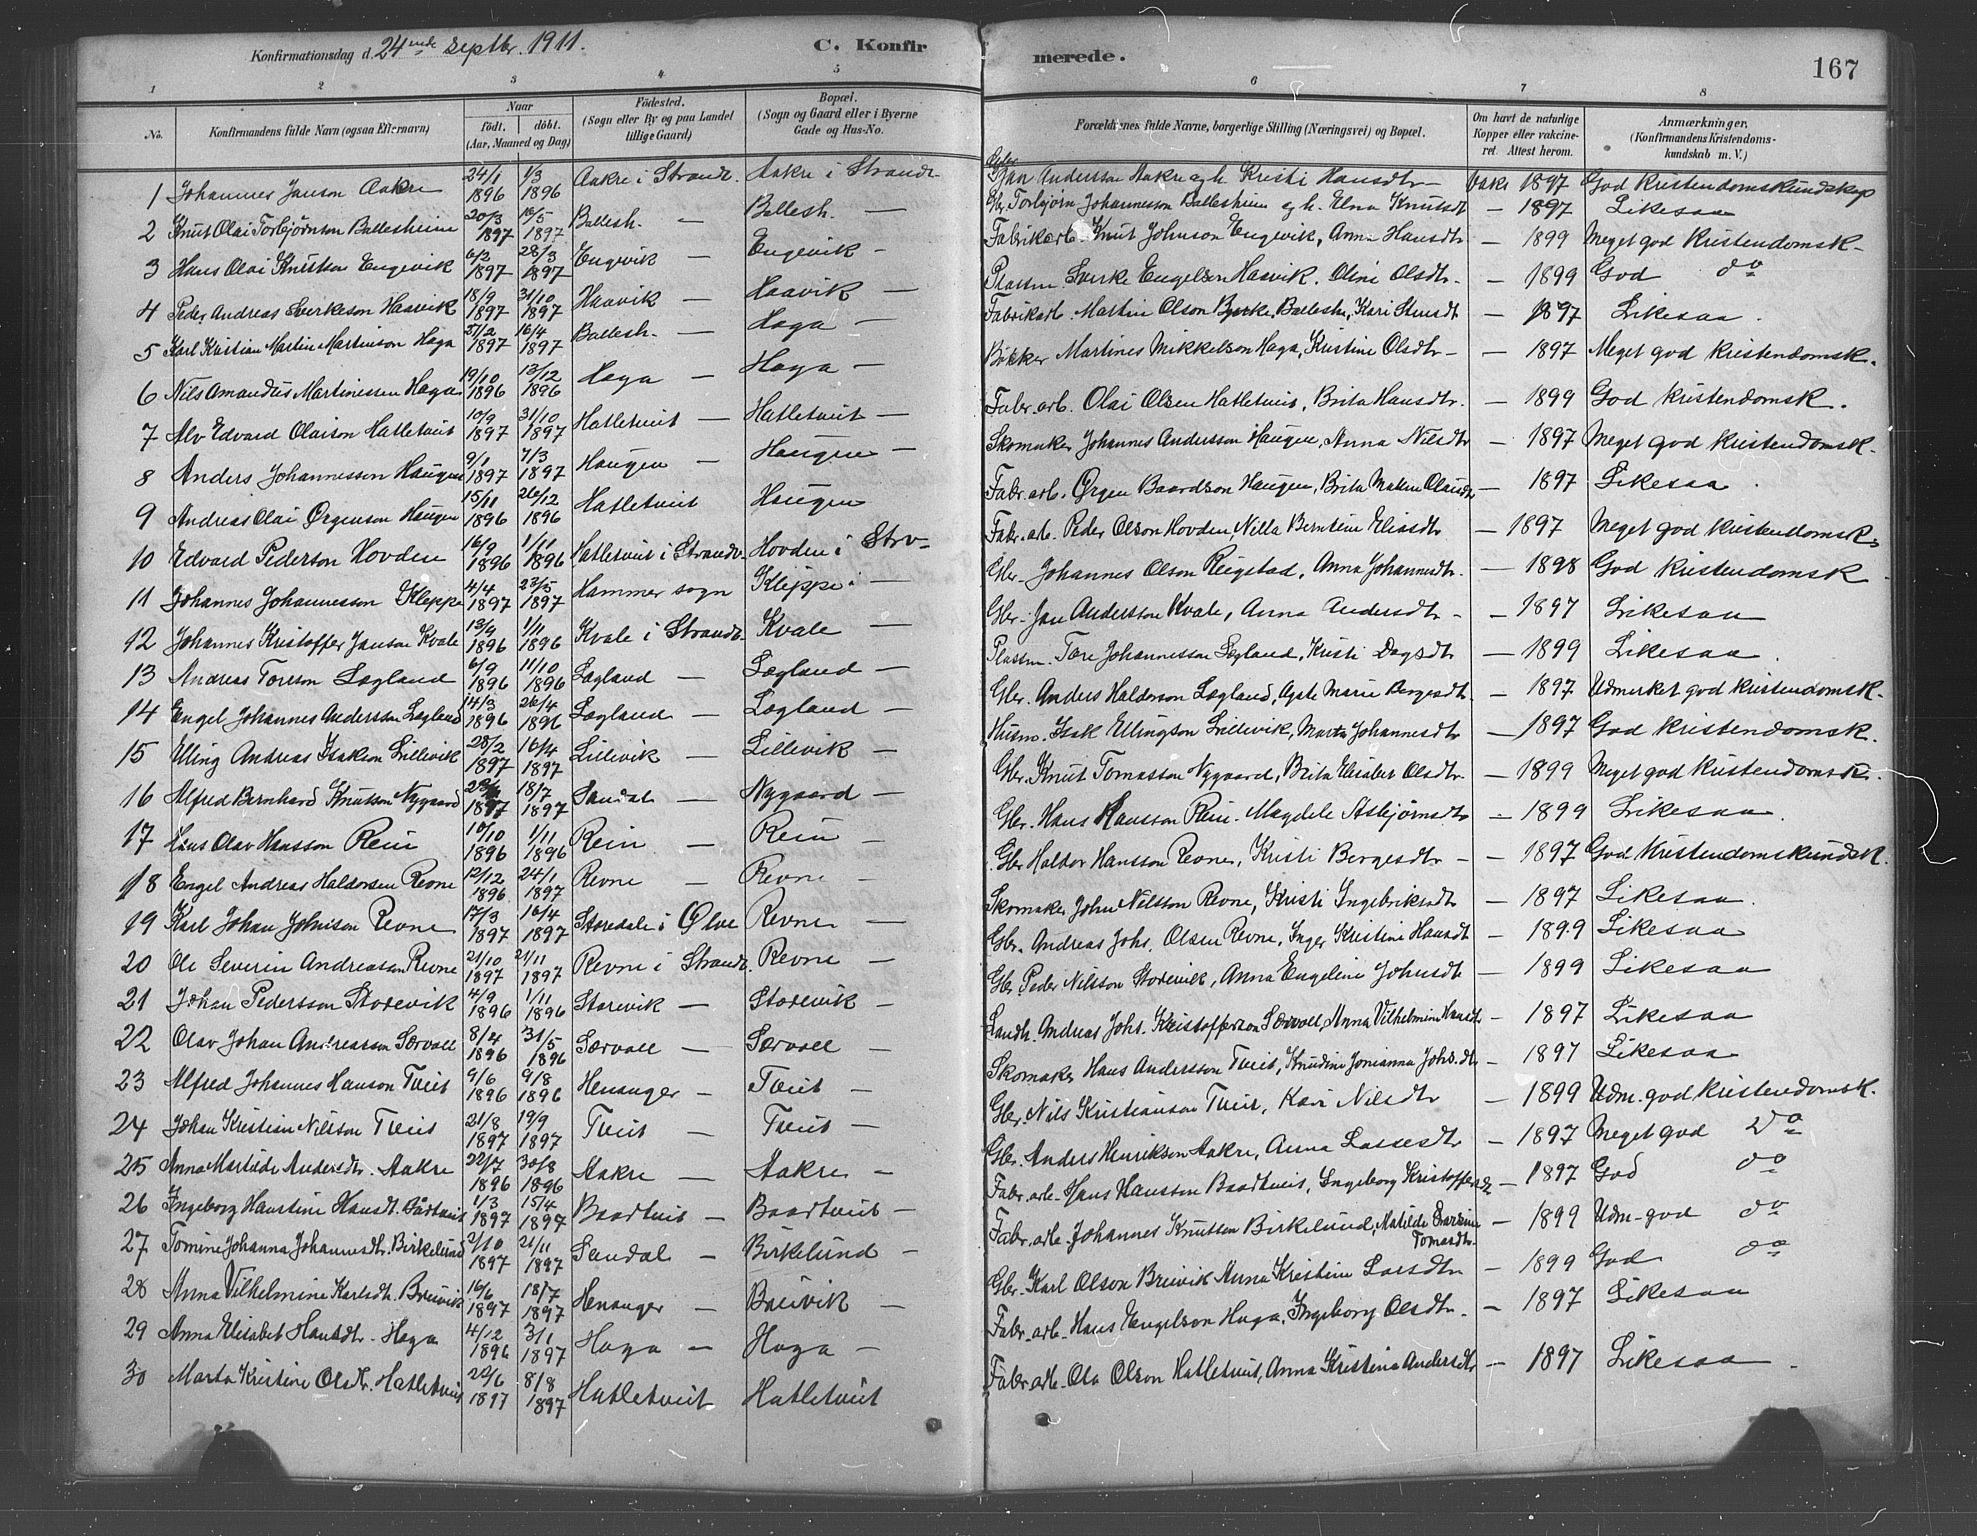 Konfirmationsdag d. 24ende Septbr. 1911.
C. Konfirmerede.
167
1 2 3 4 5 6 7 8
No. Konfirmandens fulde Navn (ogsaa Efternavn) Naar født. døbt. (Aar, Maaned og Dag) Fødested. (Sogn eller By og paa Landet tillige Gaard) Bopæl. (Sogn og Gaard eller i Byerne Gade og Hus-No. Forældrenes fulde Navne, borgerlige Stilling (Næringsvei) og Bopæl. Om havt de naturlige Kopper eller vakcineret. Attest herom. Anmærkninger, (Konfirmandens Kristendomskundskab m. V.)
1 Johannes Janson Aakre 24/1 1896 1/3 1896 Aakre i Strandv. Aakre i Strandv. Gbr. Jan Andersson Aakre og h. Kristi Hansdtr — Vakc 1897 God Kristendomskundskap
2 Knut Olai Torbjørnsen Ballesheim 20/3 1897 16/5 1897 Ballesh. — Ballesh. — Gbr. Torbjørn Johannesson Ballesheim og h. Elna Knutsdt — 1897 Likesaa
3 Hans Olai Knutsen Engevik 6/2 1897 28/3 1897 Engevik — Engevik — Fabrikarb. Knut Johnson Engevik, Anna Hansdtr — 1899 Meget god Kristendomsk.
4 Peder Andreas Sverkeson Haavik 18/9 1897 31/10 1897 Haavik — Haavik — Plassm. Sverke Engelsen Haavik. Oline Olsdtr — 1899 God do
5 Karl Kristian Martin Martinson Haga 27/2 1897 16/4 1897 Ballesh. — Haga — Fabrikarb. Martin Olson Ballesh., Kari Stensdt — 1897 Likesaa.
6 Nils Amandus Martinessen Haga 19/10 1896 13/12 1896 Haga — Haga — Bøkker Martines Mikkelson Haga, Kristine Olsdtr — 1897 Meget god Kristendomsk.
7 Alv Edvard Olaison Hatletveit 10/9 1897 31/10 1897 Hatletveit — Hatletveit — Fabr. arb. Olai Olsen Hatletveit, Brita Hansdtr. — 1899 God Kristendomsk.
8 Anders Johannesson Haugen 9/1 1897 7/3 1897 Haugen — Haugen — Skomaker Johannes Andersson Haugen, Anna Nilsdtr — 1897 Meget god Kristendomsk.
9 Andreas Olai Ørgenson Haugen 15/11 1896 26/12 1896 Hatletveit Haugen Fabr. arb. Ørgen Baardson Haugen, Brita Malene Olausdtr — 1897 Likesaa
10 Edvard Pederson Hovden 16/9 1896 1/11 1896 Hatletveit i Strandv. Hovden i Strv. Fabr. arb. Peder Olson Hovden, Nilla Berntine Eliasdtr — 1897 Meget god Kristendomsk.
11 Johannes Johannesson Kleppe 4/4 1897 23/5 1897 Hammer sogn Kleppe i — Gbr. Johannes Olson Reigstad, Anna Johannesdtr. — 1898 God Kristendomsk
12 Johannes Kristoffer Janson Kvale 13/9 1896 1/11 1896 Kvale i Strandv. Kvale — Gbr. Jan Andersson Kvale, Anna Andersdtr — 1897 Likesaa
13 Andreas Toreson Lægland 6/9 1896 11/10 1896 Lægland — Lægland — Plassm. Tore Johannesson Lægland, Kristi Dagsdtr — 1899 Likesaa.
14 Engel Johannes Andersson Lægland 14/3 1896 26/4 1896 Lægland — Lægland — Gbr. Anders Halderson Lægland, Marie Bergesdtr. — 1897 Udmerket god Kristendomsk.
15 Elling Andreas Isakson Lillevik 28/2 1897 16/4 1897 Lillevik — Lillevik — Husm. Isak Ellingson Lillevik, Marta Johannesdtr — 1897 God Kristendomsk.
16 Alfred Bernhard Knutson Nygaard 1897 18/7 1897 Sandal — Nygaard — Gbr. Knut Tomasson Nygaard, Brita Elisabet Olsdtr. — 1899 Meget god Kristendomsk.
17 Hans Olav Hansson Rein 10/10 1896 1/11 1896 Rein — Rein — Gbr. Hans Hansson Rein. Magdele Asbjørnsdtr — 1899 Likesaa.
18 Engel Andreas Haldorsen Revne 12/12 1896 24/1 1897 Revne — Revne — Gbr Haldor Hansson Revne, Kristi Bergesdtr — 1897 God Kristendomskundsk.
19 Karl Johan Johnson Revne 17/3 1897 16/4 1897 Storedale i Ølve Revne — Skomaker John Nilsson Revne, Kristi Ingebriksdtr — 1897 Likesaa.
20 Ole Severin Andreasson Revne 21/10 1897 21/11 1897 Revne i Strandv. Revne — Gbr. Andreas Johs. Olsen Revne, Inger Kristine Hansdt — 1899 Likesaa
21 Johan Pedersson Storevik 4/9 1896 1/11 1896 Storevik — Storevik — Gbr. Peder Nilsson Storevik, Anna Engeline Johnsdtr — 1899 Likesaa
22 Olav Johan Andreasson Særvoll 8/4 1896 31/5 1896 Særvoll — Særvoll — Landh. Andreas Johs. Kristofferson Særvoll, Anna Vilhelmine Hansdtr — 1897 Likesaa
23 Alfred Johannes Hanson Tveit 9/6 1896 9/8 1896 Henanger — Tveit — Skomaker Hans Andersson Tveit, Knudine Jonianna Johs.dtr — 1897 Likesaa
24 Johan Kristian Nilsson Tveit 21/8 1897 19/9 1897 Tveit — Tveit — Gbr. Nils Kristianson Tveit, Kari Nilsdtr — 1899 Udm. god Kristendomsk.
25 Anna Martilde Andersdtr. Aakre 22/7 1896 30/8 1896 Aakre — Aakre — Gbr. Anders Henrikson Aakre, Anna Lassesdtr — 1897 Meget god Do
26 Ingeborg Haustine Hansdt. Baadtveit 1/3 1897 15/4 1897 Baadtveit — Baadtveit — Fabr. arb. Hans Hansson Baadtveit, Ingeborg Kristoffersdtr — 1897 God do
27 Tomine Johanna Johannesdtr. Birkelund 2/10 1897 21/11 1897 Sandal — Birkelund — Fabr. arb. Johannes Knutson Birkelund, Matilde Tomasdtr — 1899 Udm. god do
28 Anna Vilhelmine Karlsdtr. Breivik 16/6 1897 18/7 1897 Henanger — Breivik — Gbr. Karl Olson Breivik Anna Kristine Larsdtr — 1899 God do
29 Anna Elisabet Hansdtr. Haga 4/12 1896 3/1 1897 Haga — Haga — Fabr. arb. Hans Engelson Haga, Ingeborg Olsdtr. — 1897 Likesaa
30 Marta Kristine Olsdtr. Hatletveit 22/6 1897 8/8 1897 Hatletveit Hatletveit Fabr. arb. Ola Olson Hatletveit, Anna Kristina Andersdtr — 1897 Likesaa